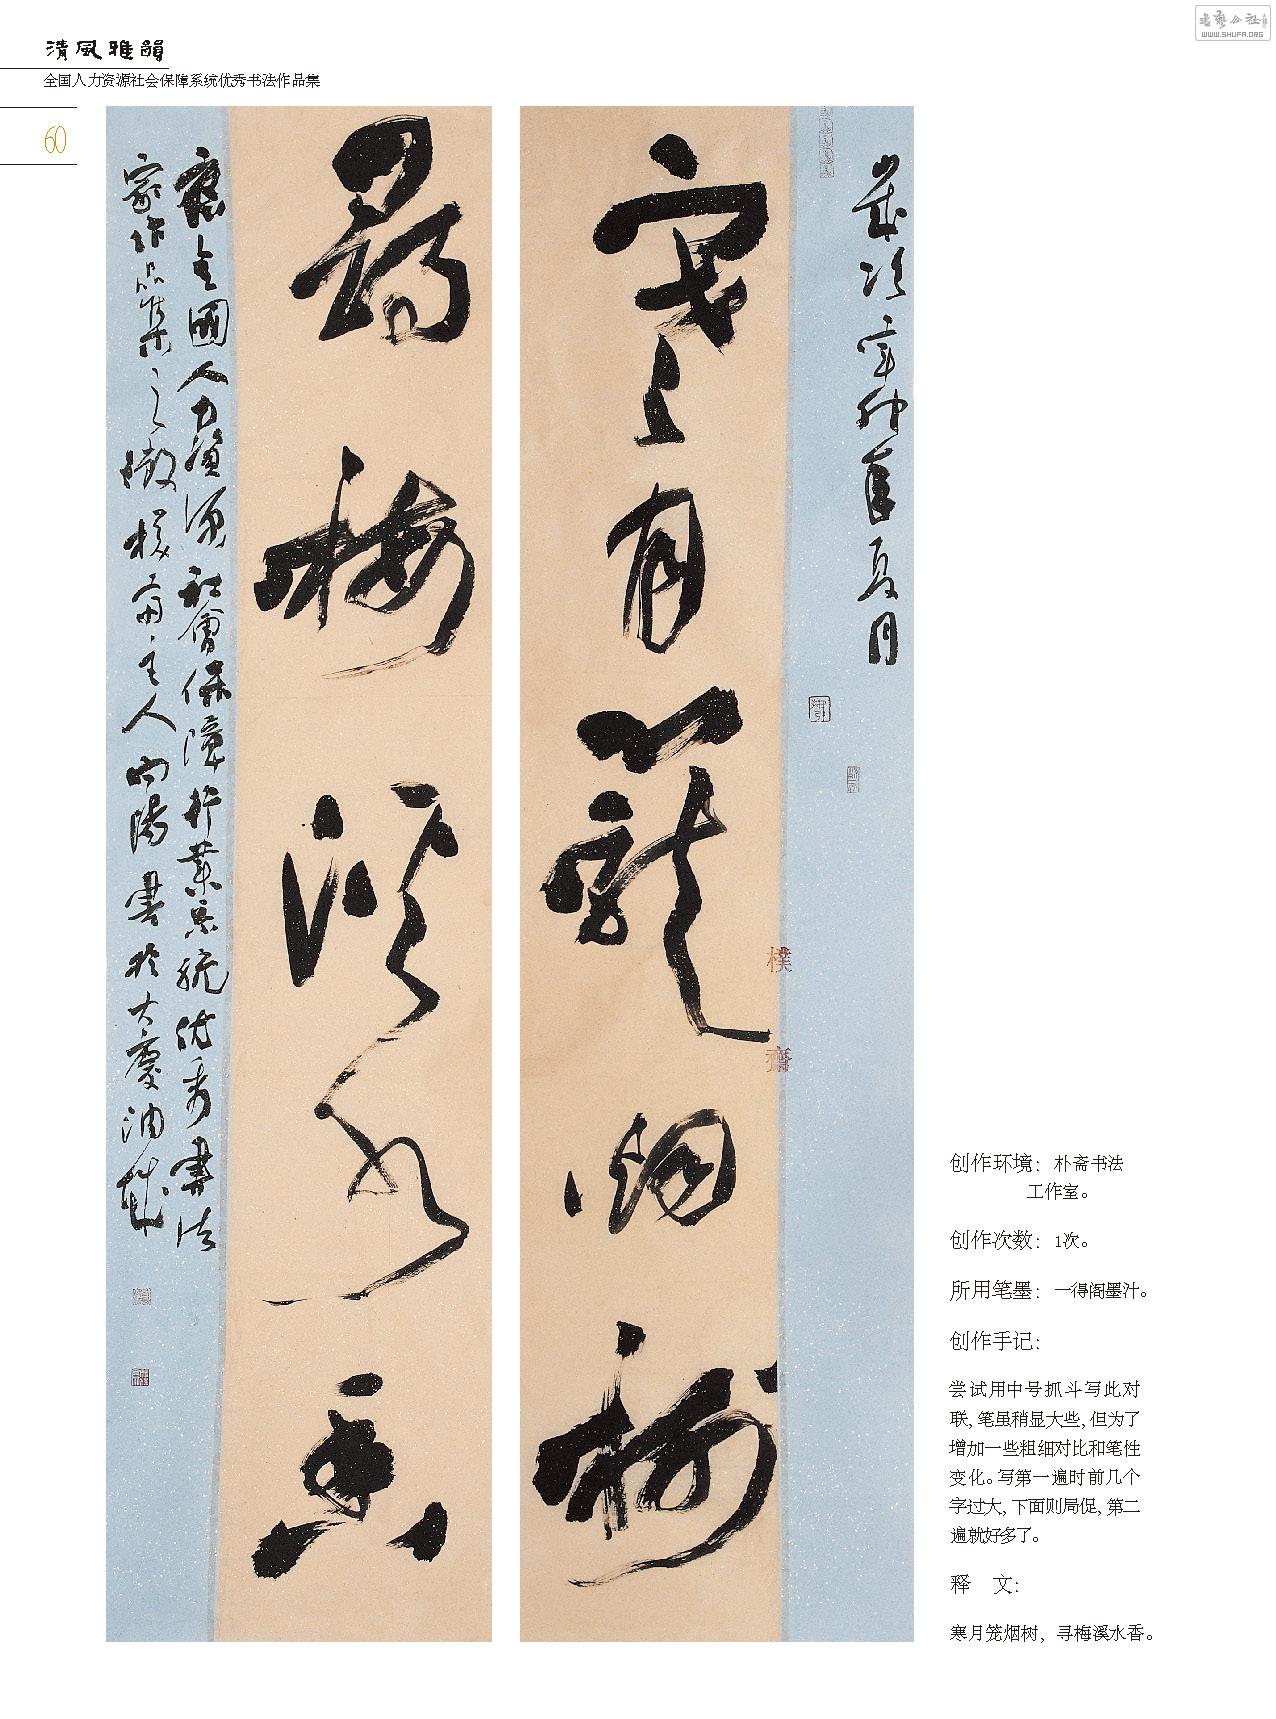 清風雅韻
全国人力资源社会保障系统优秀书法作品集
60
WWW.SHUFA.ORG
寒月籠烟樹
尋梅溪水香
歲次辛卯年夏月
應全國人力資源社會保障行業系統优秀書法
家作品集之徵 樸齋主人向陽書於大慶油城
樸
齋
创作环境：朴斋书法
工作室。
创作次数：1次。
所用笔墨：一得阁墨汁。
创作手记：
尝试用中号抓斗写此对
联，笔虽稍显大些，但为了
增加一些粗细对比和笔性
变化。写第一遍时前几个
字过大，下面则局促，第二
遍就好多了。
释 文：
寒月笼烟树，寻梅溪水香。